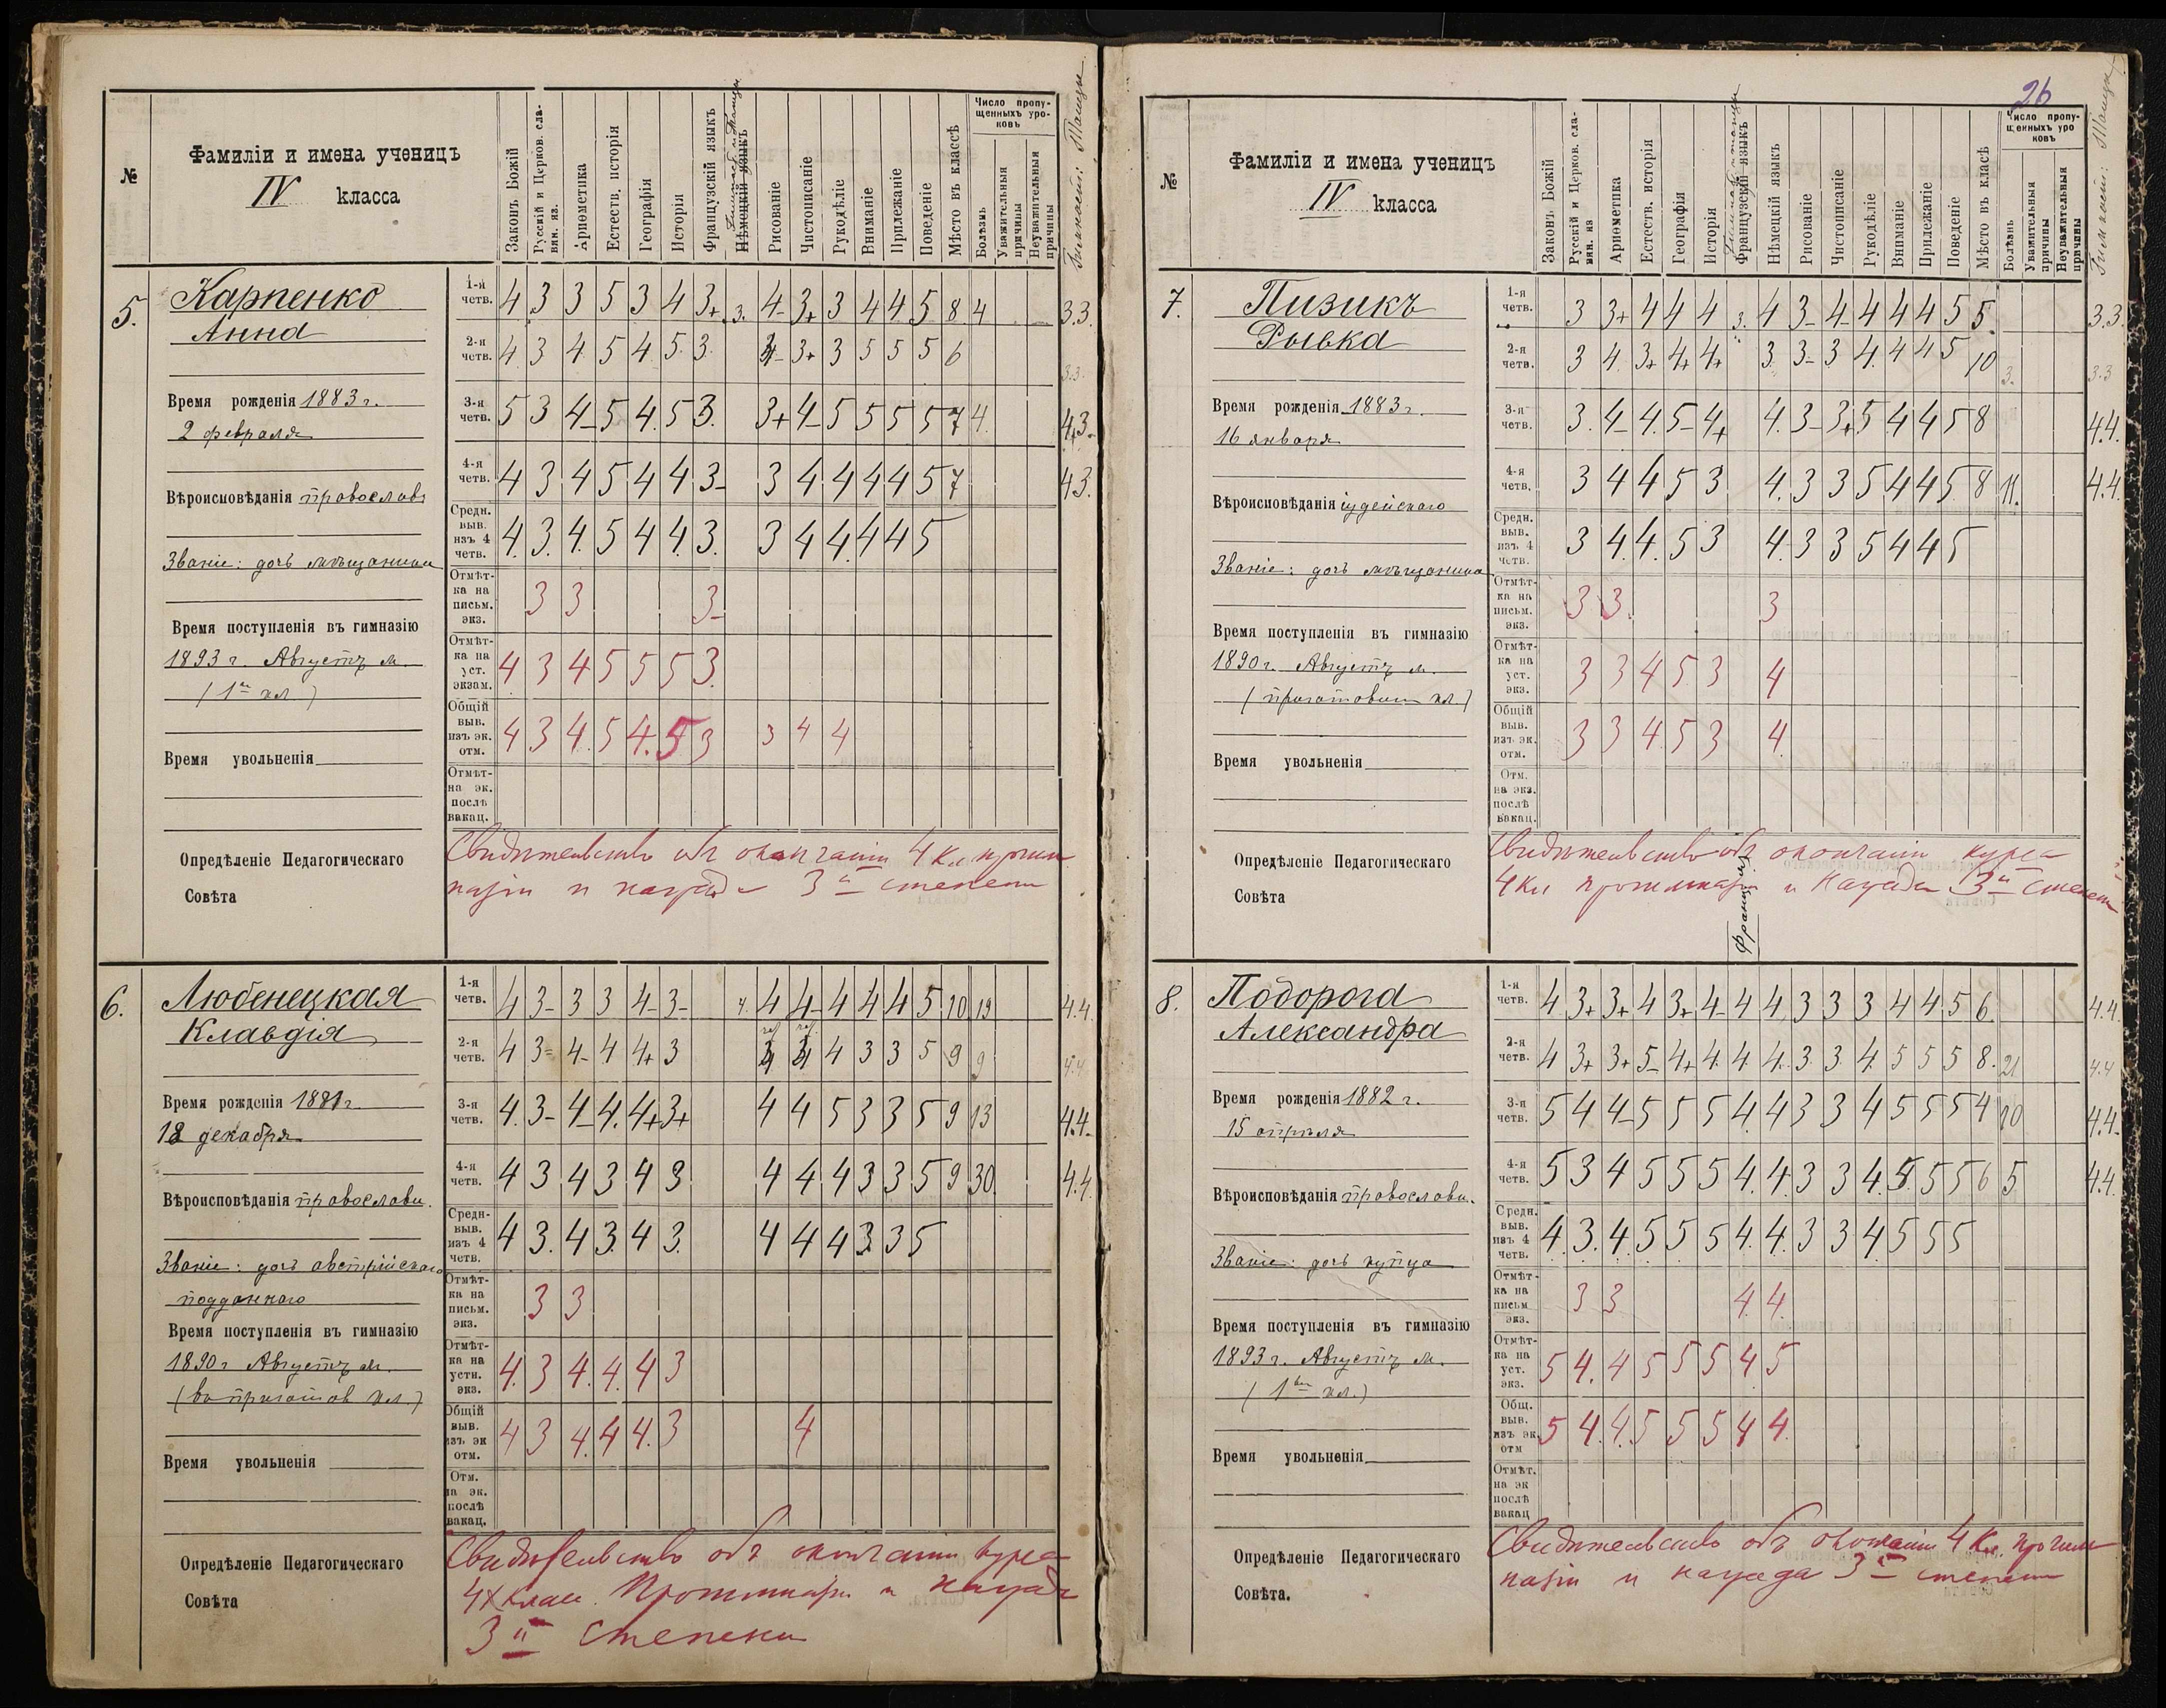 №
Фамиліи и имена ученицъ
IV класса
Законъ Божій
Русскій и Церков. сла-
вян. яз.
Ариѳметика
Естеств. исторія
Географія
Исторія
Французскій языкъ
Нѣмецкій языкъ
Рисованіе
Чистописаніе
Рукодѣліе
Вниманіе
Прилежаніе
Поведеніе
Мѣсто въ классѣ
Число пропу-
щенныхъ уро-
ковъ
Болѣзнь
Уважительныя
причины
Неуважительныя
причины
Гимнаст: Танцы
5.
Карпенко
Анна
Время рожденія 1883 г.
2 февраля
Вѣроисповѣданія православ
Званіе: дочь мѣщанина
Время поступленія въ гимназію
1893 г. Августъ м.
(1й кл.)
Время увольненія
Опредѣленіе Педагогическаго
Совѣта
1-я четв. 4 3 3 5 3 4 3+ 3. 4- 3+ 3 4 4 5 8 4 3.3.
2-я четв. 4 3 4. 5 4. 5. 3. 3+ 3 5 5 5 6 3.3.
3-я четв. 5 3 4- 5 4. 5 3. 3+ 4- 5 5 5 5 7 4. 4+3-
4-я четв. 4 3 4 5 4 4 3- 3 4 4 4 4 5 7 4.3.
Средн. выв. изъ 4 четв. 4. 3. 4. 5 4 4. 3. 3 4 4. 4 4 5
Отмѣт-ка на письм. экз. 3 3 3-
Отмѣт-ка на уст. экзам. 4 3 4 5 5 5 3.
Общій выв. изъ эк. отм. 4 3 4. 5 4. 5 3 3 4 4
Отмѣт- на эк. послѣ вакац.
Свидѣтельство объ окончаніи 4 кл. прогим
назіи и награда 3й степени
6.
Любенецкая
Клавдія
Время рожденія 1881 г.
18 декабря
Вѣроисповѣданія православн.
Званіе: дочь австрійскаго
подданнаго
Время поступленія въ гимназію
1890 г Августъ м.
(въ приготов кл.)
Время увольненія
Опредѣленіе Педагогическаго
Совѣта
1-я четв. 4 3- 3 3 4- 3- 4. 4 4- 4 4 4 5 10 19 4.4.
2-я четв. 4 3= 4- 4 4+ 3 4 3 3 5 9 9 4.4
3-я четв. 4. 3- 4- 4. 4+ 3+ 4 4 5 3 3 5 9 13 4.4.
4-я четв. 4 3 4 3 4 3 4 4 4 3 3 5 9 30. 4.4.
Средн- выв. изъ 4 четв. 4 3. 4 3. 4 3. 4 4 4 3 3 5
Отмѣт-ка на письм. экз. 3 3
Отмѣт-ка на устн. экз. 4. 3 4. 4. 4 3
Общій выв. изъ эк отм. 4 3 4. 4 4. 3 4
Отм. на эк. послѣ вакац.
Свидѣтельство объ окончаніи курса
4х клас. Прогимназіи и награда
3й степени
26
№
Фамиліи и имена ученицъ
IV класса
Законъ Божій
Русскій и Церков. сла-
вян. яз
Ариѳметика
Естеств. исторія
Географія
Исторія
Французскій языкъ
Нѣмецкій языкъ
Рисованіе
Чистописаніе
Рукодѣліе
Вниманіе
Прилежаніе
Поведеніе
Мѣсто въ класѣ
Число пропу-
щенныхъ уро
ковъ
Болѣзнь
Уважительныя
причины
Неуважительныя
причины
Гимнаст: Танцы
7.
Пизикъ
Рывка
Время рожденія 1883 г.
16 января
Вѣроисповѣданія іудейскаго
Званіе: дочь мѣщанина
Время поступленія въ гимназію
1890 г. Августъ м.
(приготовит кл.)
Время увольненія
Опредѣленіе Педагогическаго
Совѣта
1-я четв. 3 3+ 4 4 4 3. 4 3- 4- 4 4 4 5 5. 3.3.
2-я четв. 3 4. 3+ 4+ 4+ 3. 3- 3 4. 4 4 5 10 3. 3.3
3-я четв. 3. 4- 4. 5- 4+ 4. 3- 3+ 5 4 4 5 8 4.4.
4-я четв. 3 4 4 5 3 4. 3 3 5 4 4 5. 8 11. 4.4.
Средн. выв. изъ 4 четв. 3 4. 4. 5 3 4. 3 3 5 4 4 5
Отмѣт-ка на письм. экз. 3 3. 3
Отмѣт-ка на уст. экз. 3 3 4 5 3 4
Общій выв. изъ эк. отм. 3 3 4. 5 3 4.
Отм. на экз. послѣ вакац.
Свидѣтельство объ окончаніи курса
4 кл прогимназіи и награда 3й степени
Француз
8.
Подорога
Александра
Время рожденія 1882 г.
15 апрѣля
Вѣроисповѣданія православн.
Званіе: дочь купца
Время поступленія въ гимназію
1893 г. Августъ м.
(1вый кл.)
Время увольненія
Опредѣленіе Педагогическаго
Совѣта.
1-я четв. 4 3+ 3+ 4 3+ 4- 4 4 3 3 3 4 4 5 6 4.4.
2-я четв. 4 3+ 3+ 5- 4+ 4. 4 4. 3 3 4. 5 5 5 8. 21 4.4
3-я четв. 5 4 4- 5 5 5 4. 4 3 3 4 5 5 5 4 10 4.4.
4-я четв. 5 3 4 5 5 5 4. 4. 3 3 4. 5. 5 5 6 5 4.4.
Средн. выв. изъ 4 четв. 4. 3. 4. 5 5 5 4. 4. 3 3 4 5 5 5
Отмѣт-ка на письм экз. 3 3 4. 4
Отмѣт-ка на уст. экз. 5 4. 4 5 5 5 4 5
Общ. выв. изъ эк. отм 5 4. 4. 5 5 5 4 4
Отмѣт. на эк послѣ вакац
Свидѣтельство объ окончаніи 4 кл. прогим
назіи и награда 3й степени